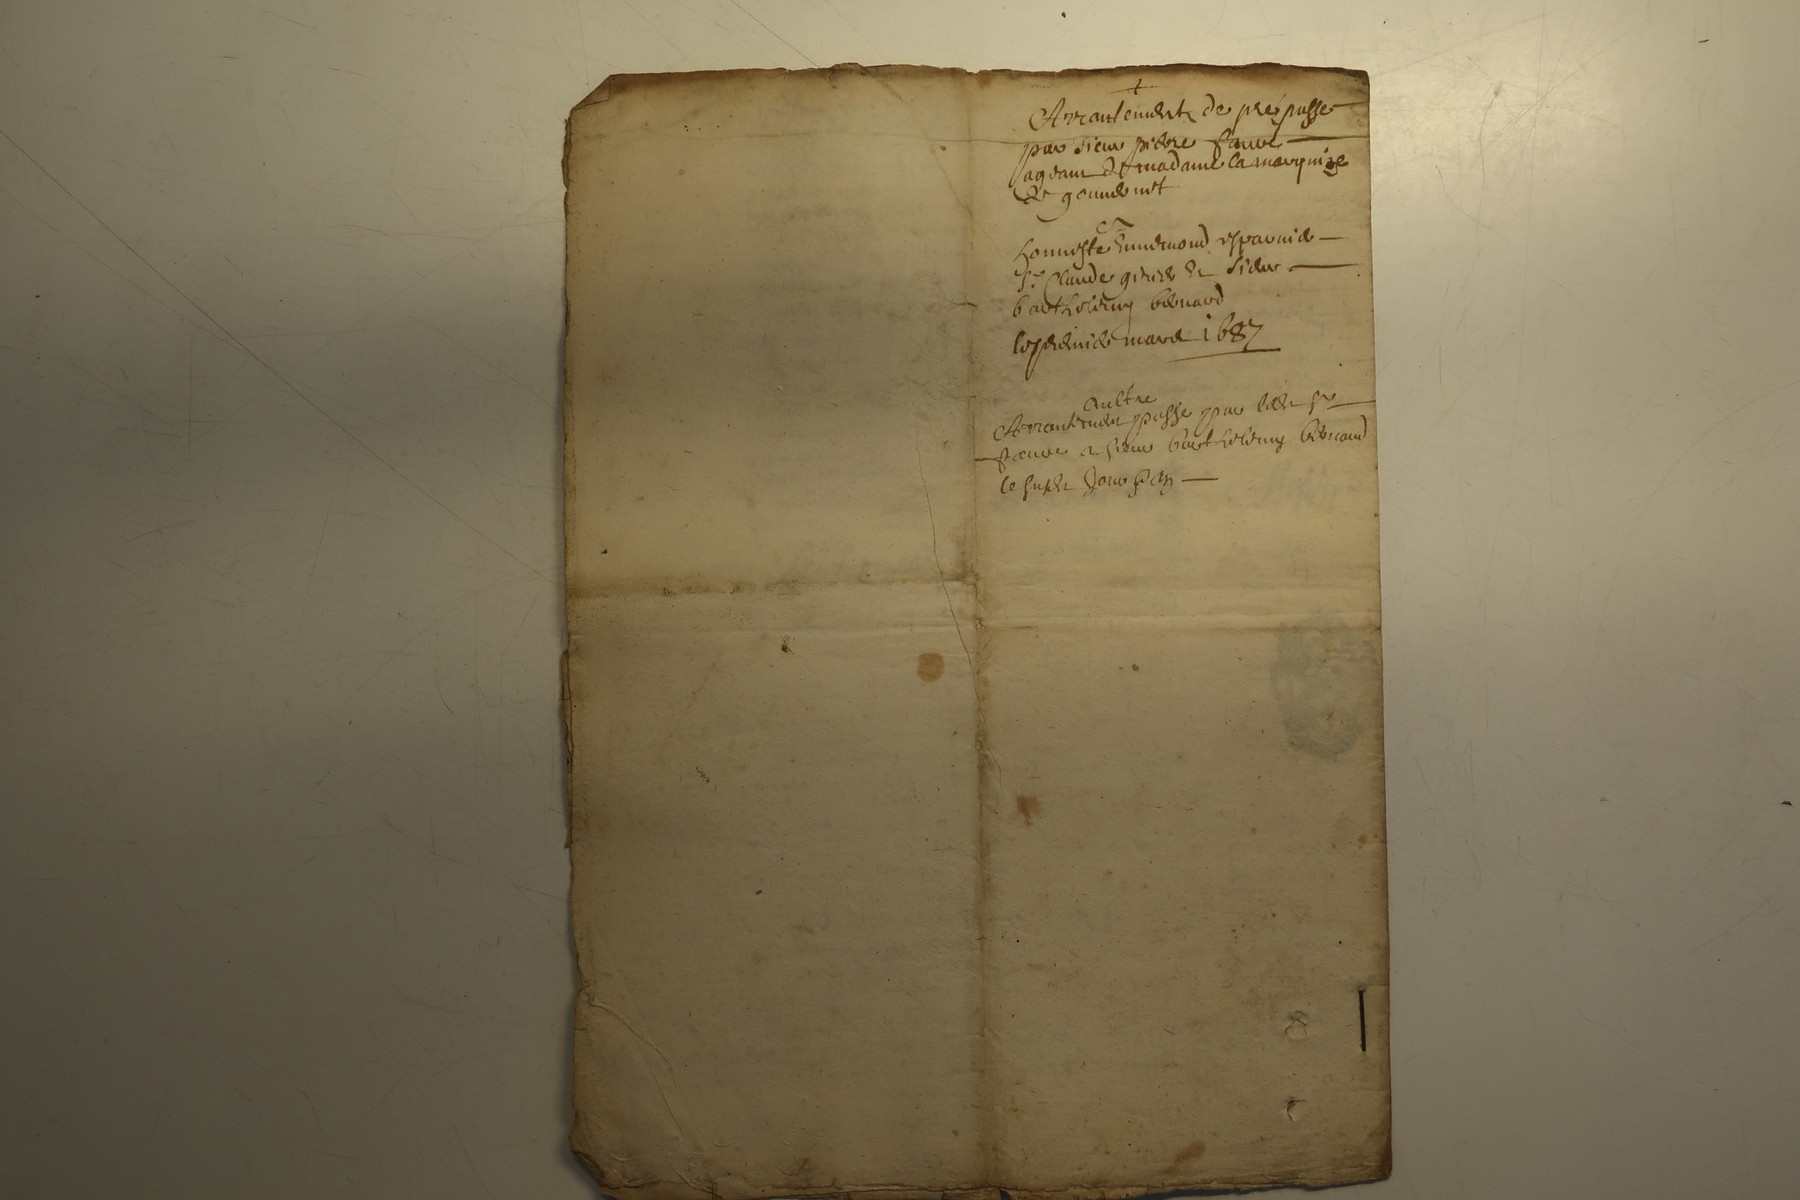 Arrantement de pré passé
par sieur pierre faure
ageant de madame la marquize
de gouvernet
A
honneste Eunemond esparvié
Sr Claude girard et sieur
barthelemy bernard
le premier mars 1687
aultre
Arrantement passé par ledit sr
faure a sieur barthelemy bernard
le susdit jour